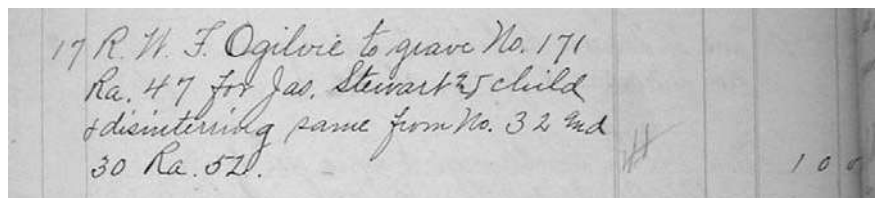 17 R. W. F. Ogilvie to grave No. 171
Ra. 47 for Jas. Stewart & child
& disinterring same from No. 32 and
30 Ra. 52. 1 0 0